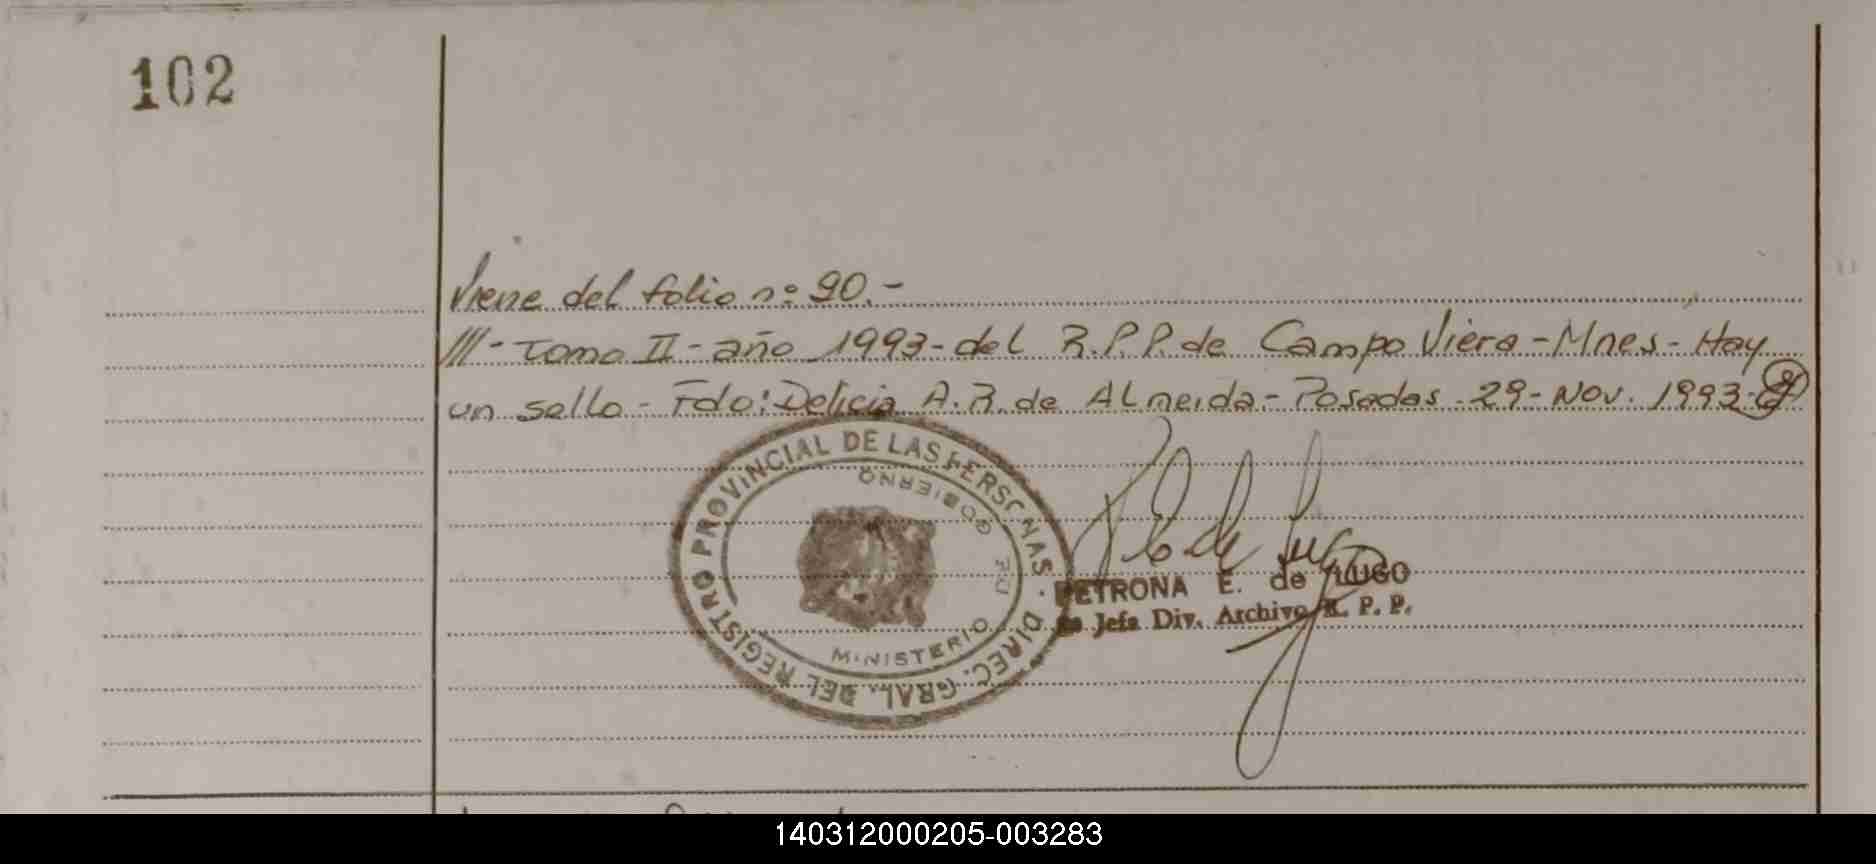 102
Viene del folio nº 90.-
///- Tomo II - año 1993 - del R.P.P. de Campo Viera - Mnes - Hay
un sello - Fdo: Delicia A.R. de Almeida - Posadas 29 - Nov. 1993.-
DIREC. GRAL. DEL REGISTRO PROVINCIAL DE LAS PERSONAS .
MINISTERIO DE GOBIERNO
PETRONA E. de LUGO
Jefa Div. Archivo R. P. P.
140312000205-003283